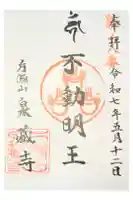 奉拝
令和七年五月十二日
不動明王
泉蔵寺